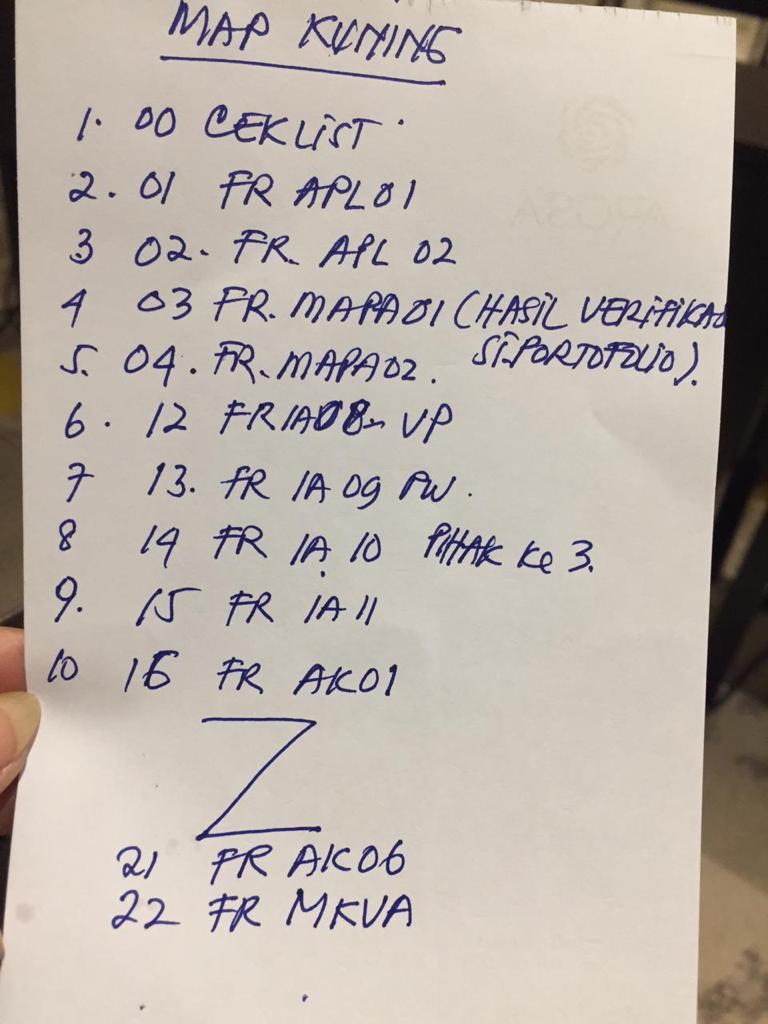 MAP KUNING
1. 00 CEKLIST
2. 01 FR APL01
3 02. FR. APL 02
4 03 FR. MAPA01 (HASIL VERIFIKA
SI.PORTOFOLIO).
5. 04. FR. MAPA02.
6. 12 FR IA08 VP
7 13. FR IA 09 PW.
8 14 FR IA 10 PIHAK Ke 3.
9. 15 FR IA 11
10 16 FR AK01
Z
21 FR AK06
22 FR MKVA